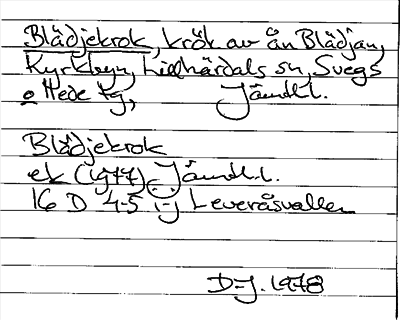 Blädjekrok, krök av ån Blädjan,
Kyrkbyn, Lillhärdals sn, Svegs
o Hede tg, Jämtl.l.
Blädjekrok
ek (1977), Jämtl.l.
16 D 4-5 i-j Leveråsvallen
D-J. 1978